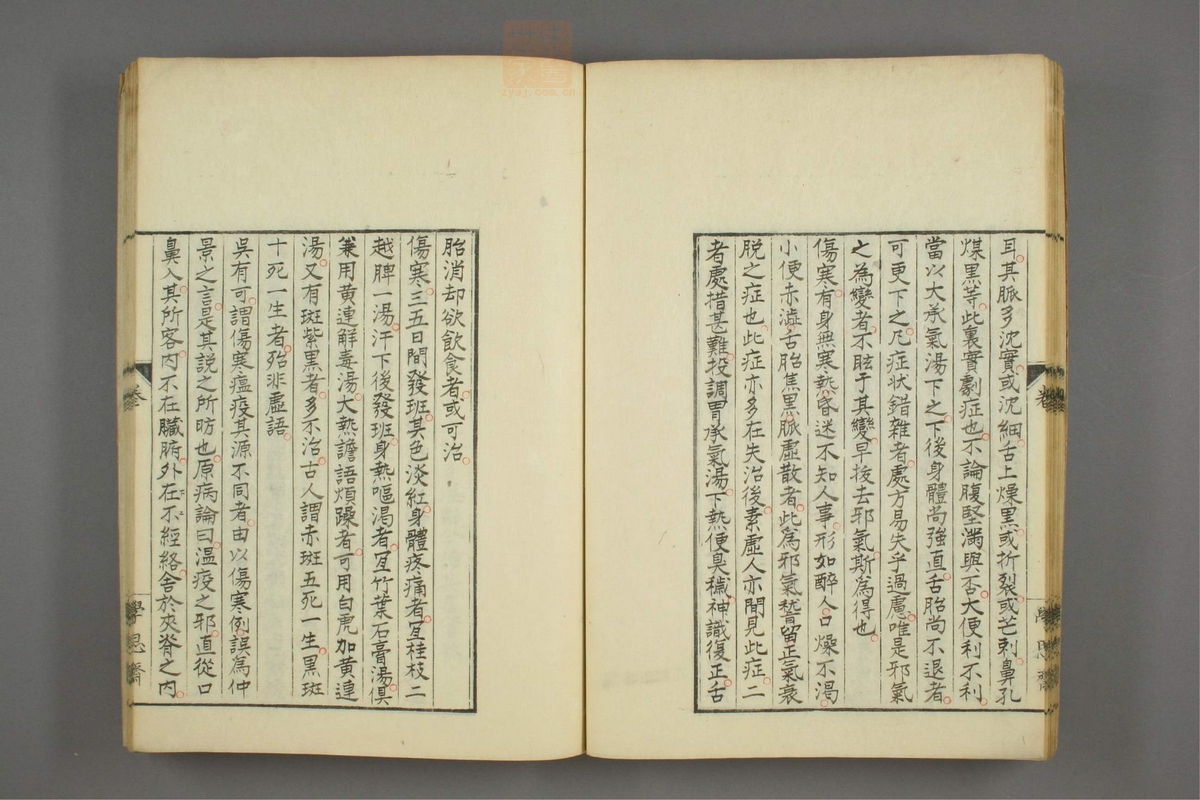 耳其脈多沈實或沈細舌上燥黑或折裂或芒刺鼻孔
煤黑等此裏實劇症也不論腹堅滿與否大便利不利
當以大承氣湯下之下後身體尚強直舌胎尚不退者
可更下之凡症状錯雜者處方易失乎過慮唯是邪氣
之為變者不眩于其變早拔去邪氣斯為得也
傷寒有身無寒熱昏迷不知人事形如醉人口燥不渴
小便赤澁舌胎焦黒脈虛散者此為邪氣稽留正氣衰
脱之症也此症亦多在失治後素虛人亦間見此症二
者處措甚難投調胃承氣湯下熱便臭穢神識復正舌
胎消却欲飲食者或可治
傷寒三五日間發班其色淡紅身體疼痛者宜桂枝二
越脾一湯汗下後發班身熱嘔渴者宜竹葉石膏湯倶
兼用黄連解毒湯大熱譫語煩躁者可用白虎加黄連
湯又有斑紫黒者多不治古人謂赤斑五死一生黒斑
十死一生者殆非虛語
吳有可謂傷寒瘟疫其源不同者由以傷寒例誤為仲
景之言是其説之所昉也原病論曰温疫之邪直從口
鼻入其所客内不在臟腑外在不經絡舎於夾脊之内
卷
學思齋
中醫
zysj.com.cn